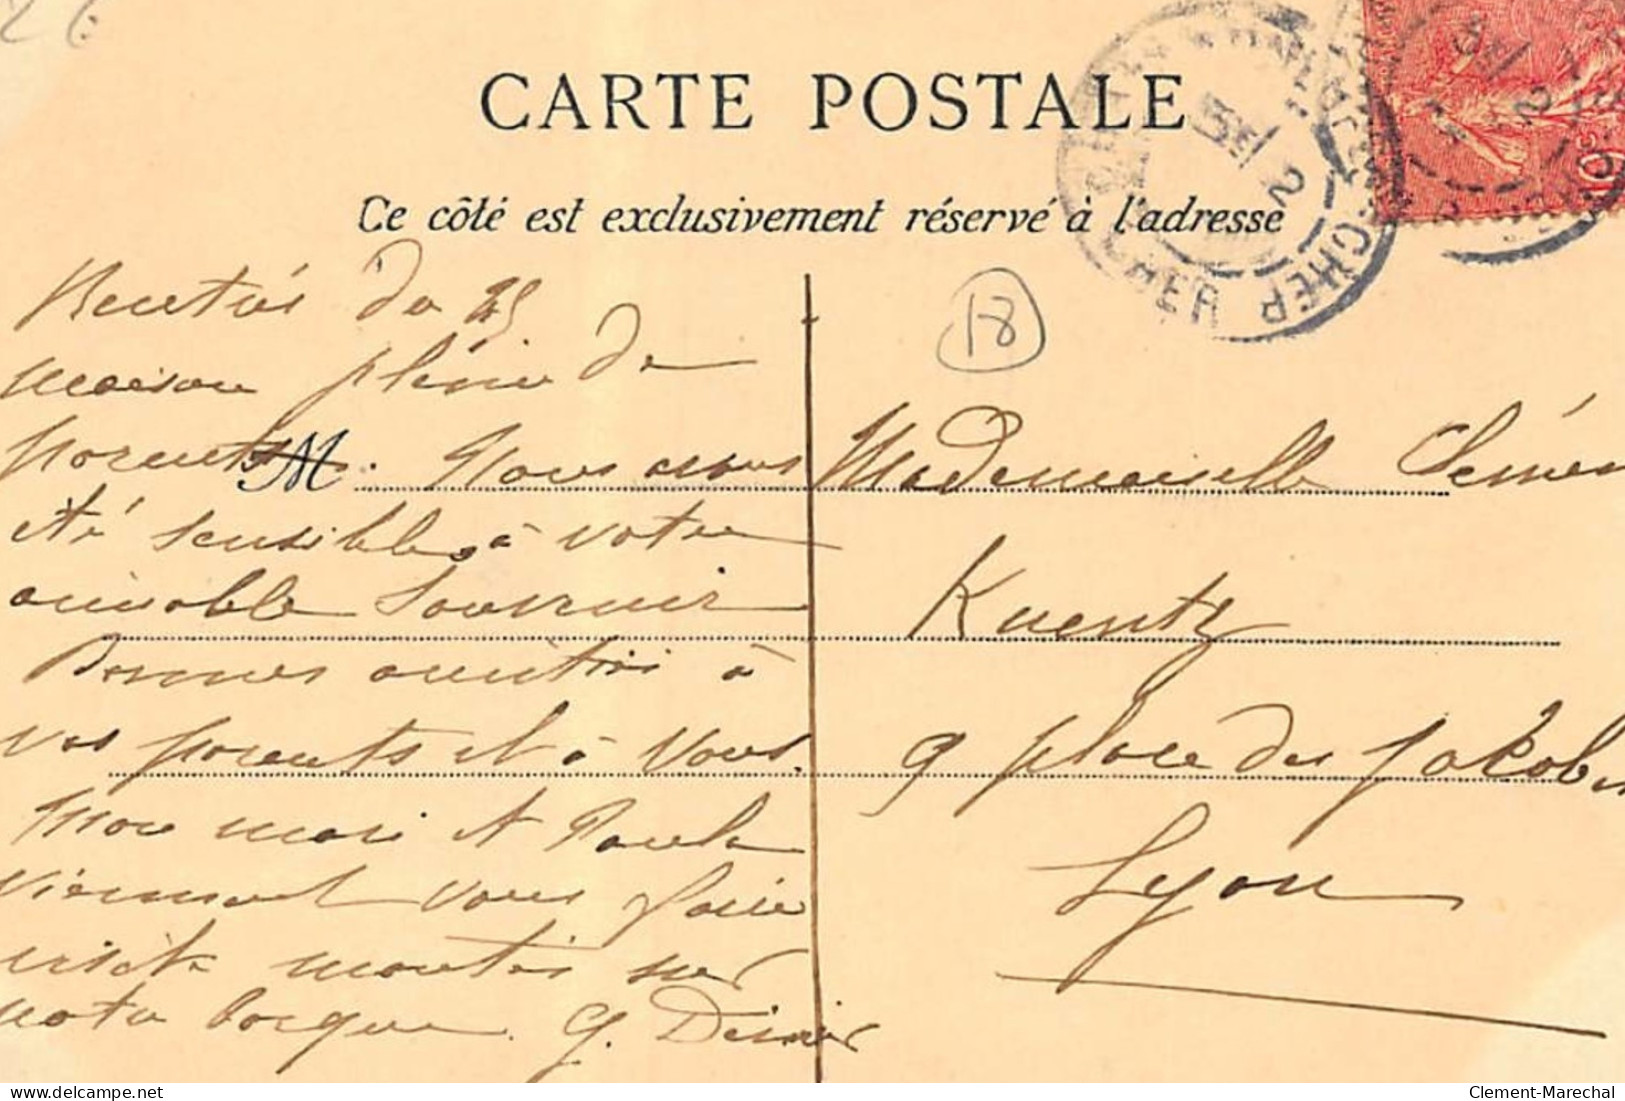 26
CARTE POSTALE
Ce côté est exclusivement réservé à l'adresse
CHER
CHER
10c
18
Rentrés du 25
maison pleine de
parents. Nous avons
M
été sensibles à votre
aimable souvenir
Bonnes amitiés à
vos parents et à vous.
Mon mari et Paule
viennent vous faire
visite montés sur
notre barque. G.
Mademoiselle Clémen
Kuentz
9 place des Jakobin
Lyon
delcampe.net
Clement-Marechal